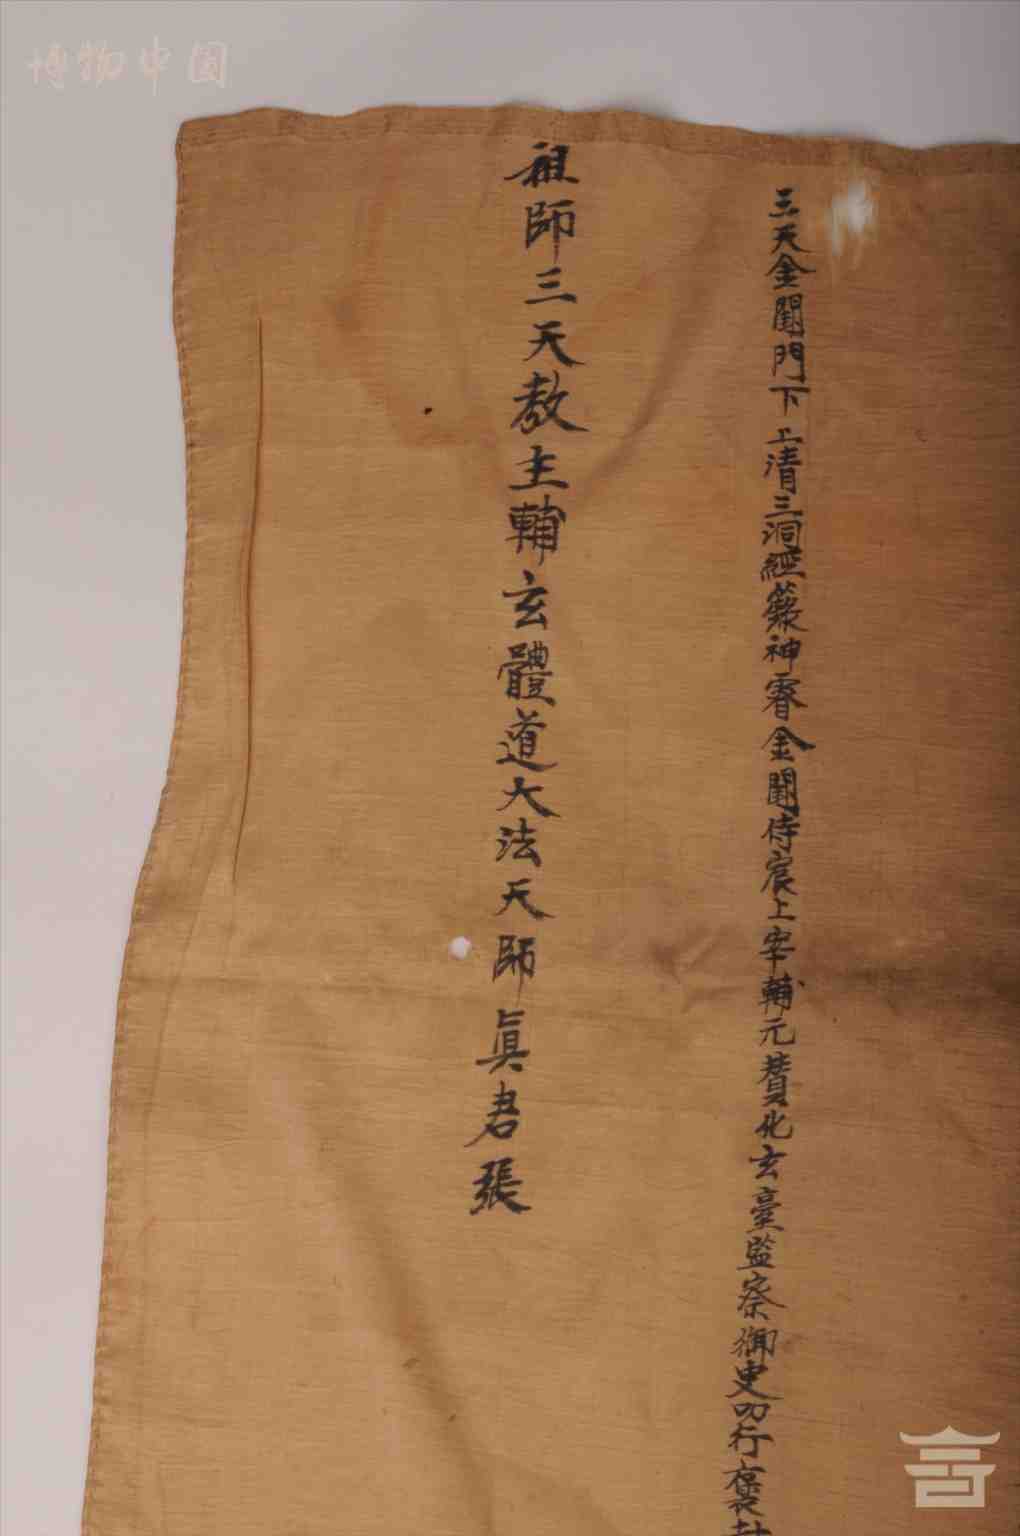 博物中国
三天金闕門下上清三洞經籙神霄金闕侍宸上宰輔元贊化玄臺監察御史叨行褒封
祖師三天教主輔玄體道大法天師眞君張